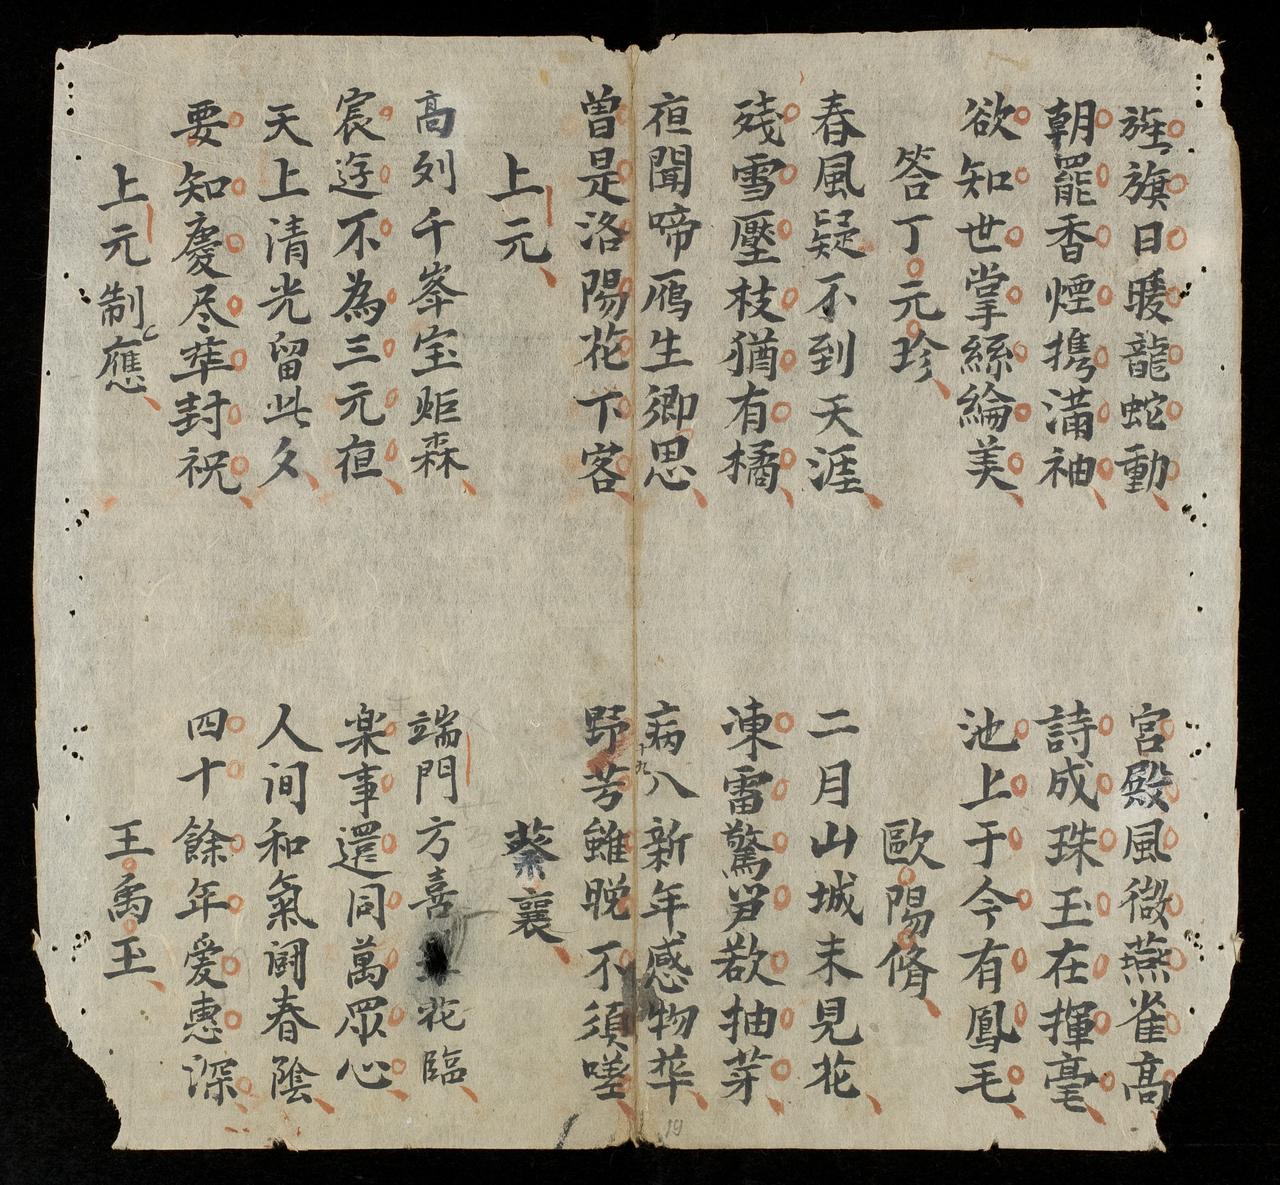 旌旗日暖龍蛇動 宮殿風微燕雀高
朝罷香煙携滿袖 詩成珠玉在揮毫
欲知世掌絲綸美 池上于今有鳳毛
答丁元珍 歐陽脩
春風疑不到天涯 二月山城未見花
殘雪壓枝猶有橘 凍雷驚笋欲抽芽
夜聞啼鴈生卿思 病入新年感物華
曽是洛陽花下客 野芳雖晚不須嗟
上元 蔡襄
高列千峯宝炬森 端門方喜花臨
宸遊不為三元夜 楽事還同萬眾心
天上清光留此夕 人间和氣闘春陰
要知慶尽華封祝 四十餘年愛惠深
上元制應 王禹玉
19